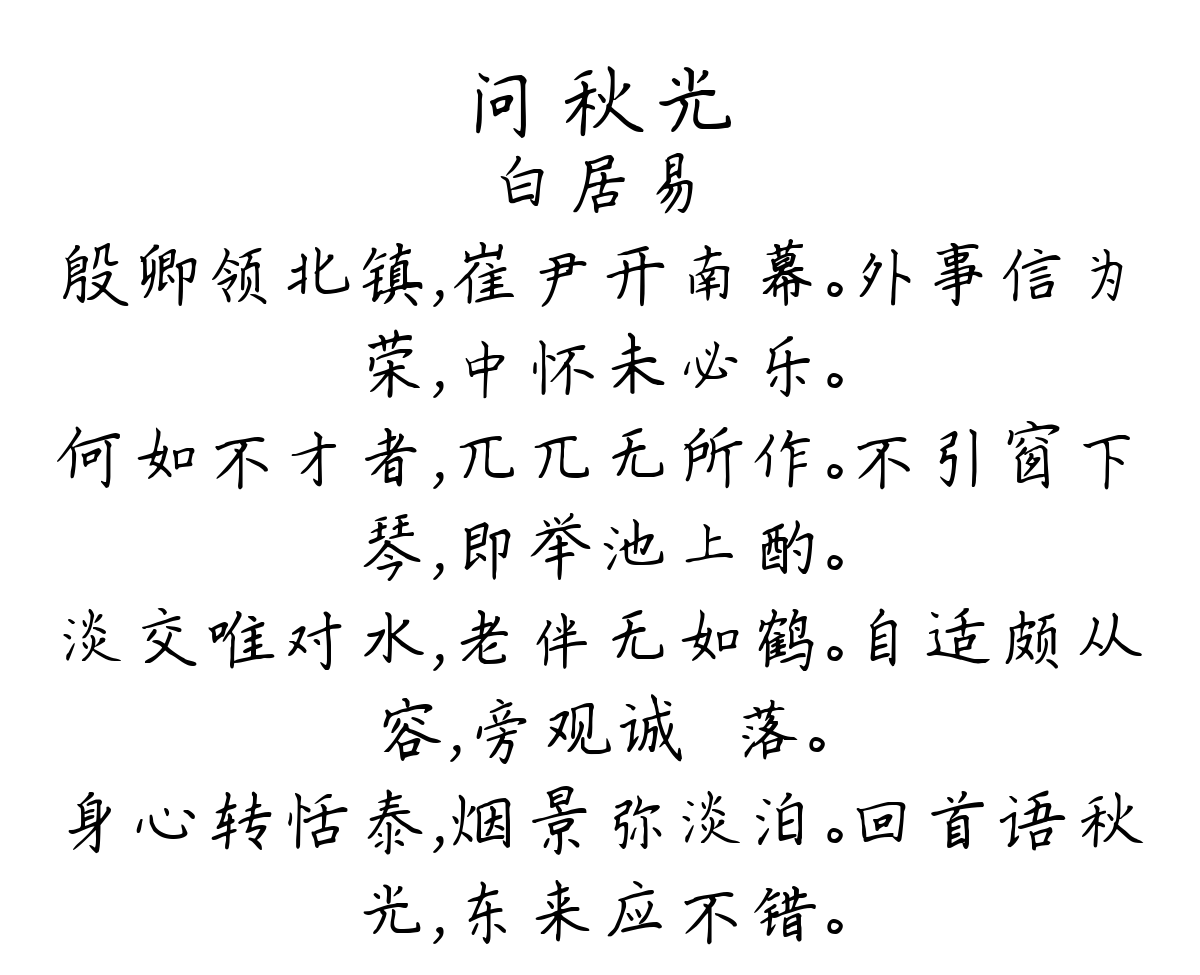 问秋光
白居易
殷卿领北镇,崔尹开南幕。外事信为
荣,中怀未必乐。
何如不才者,兀兀无所作。不引窗下
琴,即举池上酌。
淡交唯对水,老伴无如鹤。自适颇从
容,旁观诚 落。
身心转恬泰,烟景弥淡泊。回首语秋
光,东来应不错。